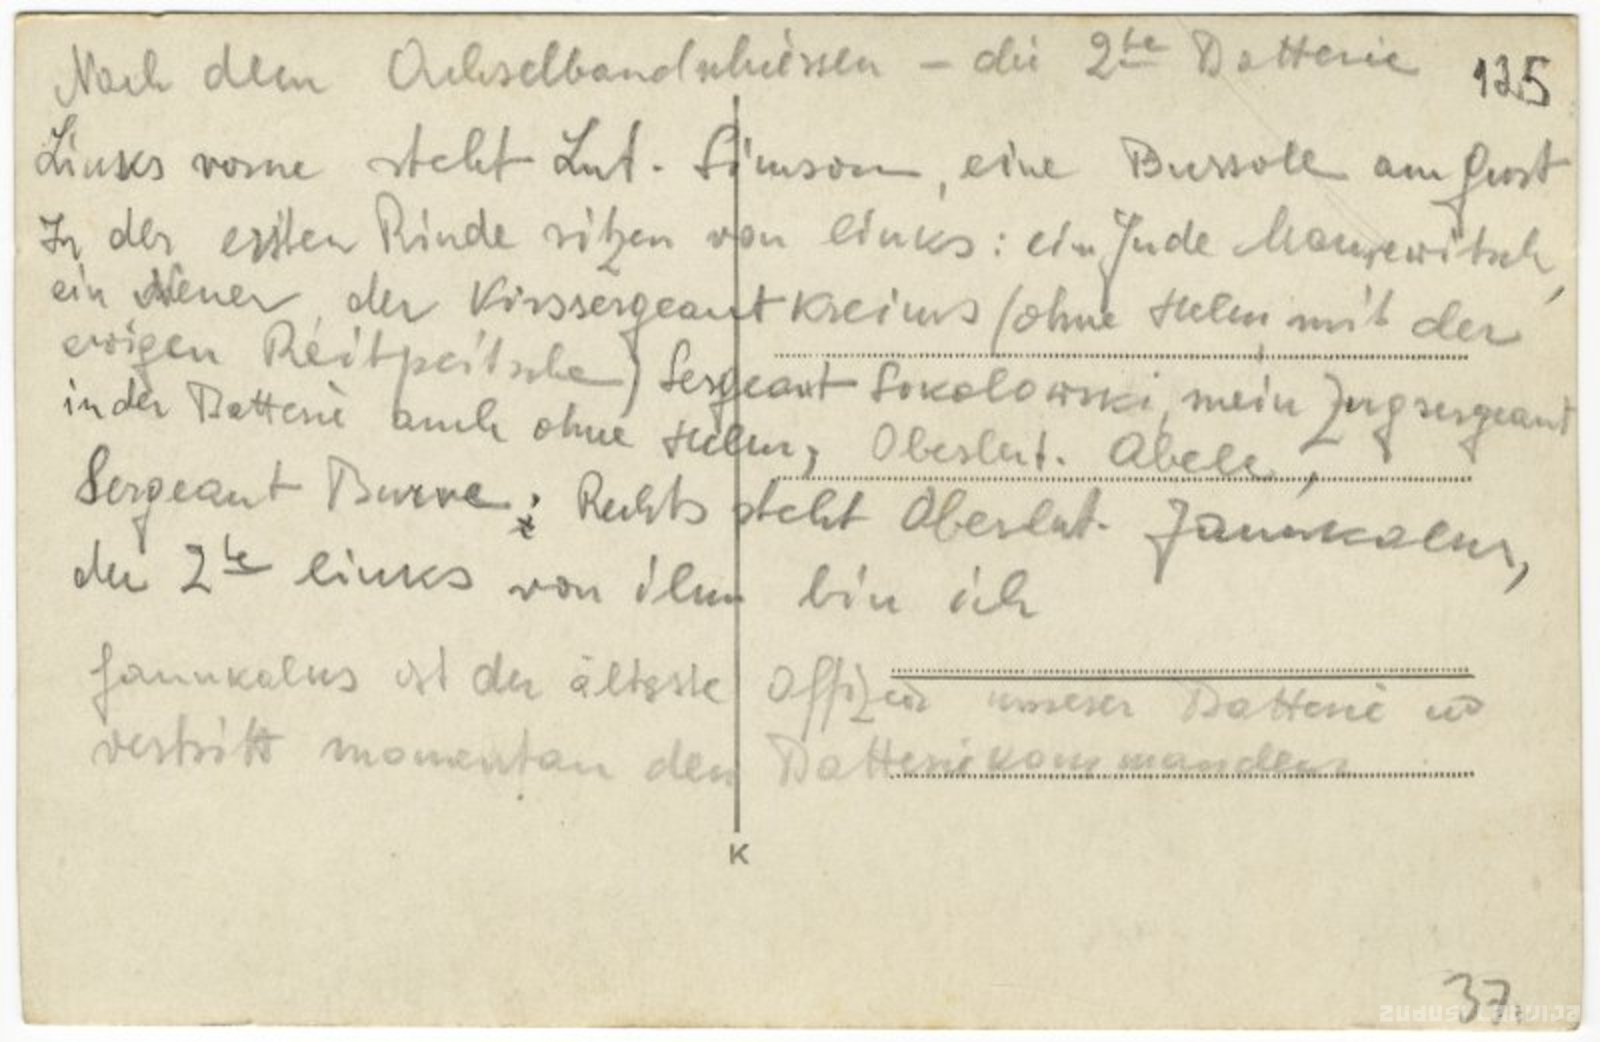 Nach dem Achselbandschiessen – die 2te Batterie 125
Links vorne steht Lnt. Simson, eine Bussole am Gurt
In der ersten Runde sitzen von links: ein Jude
ein Neuer, der Kirssergeant Kreims (ohne Helm, mit der
ewigen Reitpeitsche) Sergeant Sokolowski, mein Zugsergeant
in der Batterie auch ohne Helm, Oberlnt. Abele,
Sergeant Burve; Rechts steht Oberlnt. Jaunkalns,
der 2te links von ihm bin ich
Jaunkalns ist der älteste Offizier unserer Batterie und
vertritt momentan den Batteriekommandeur
K
37.